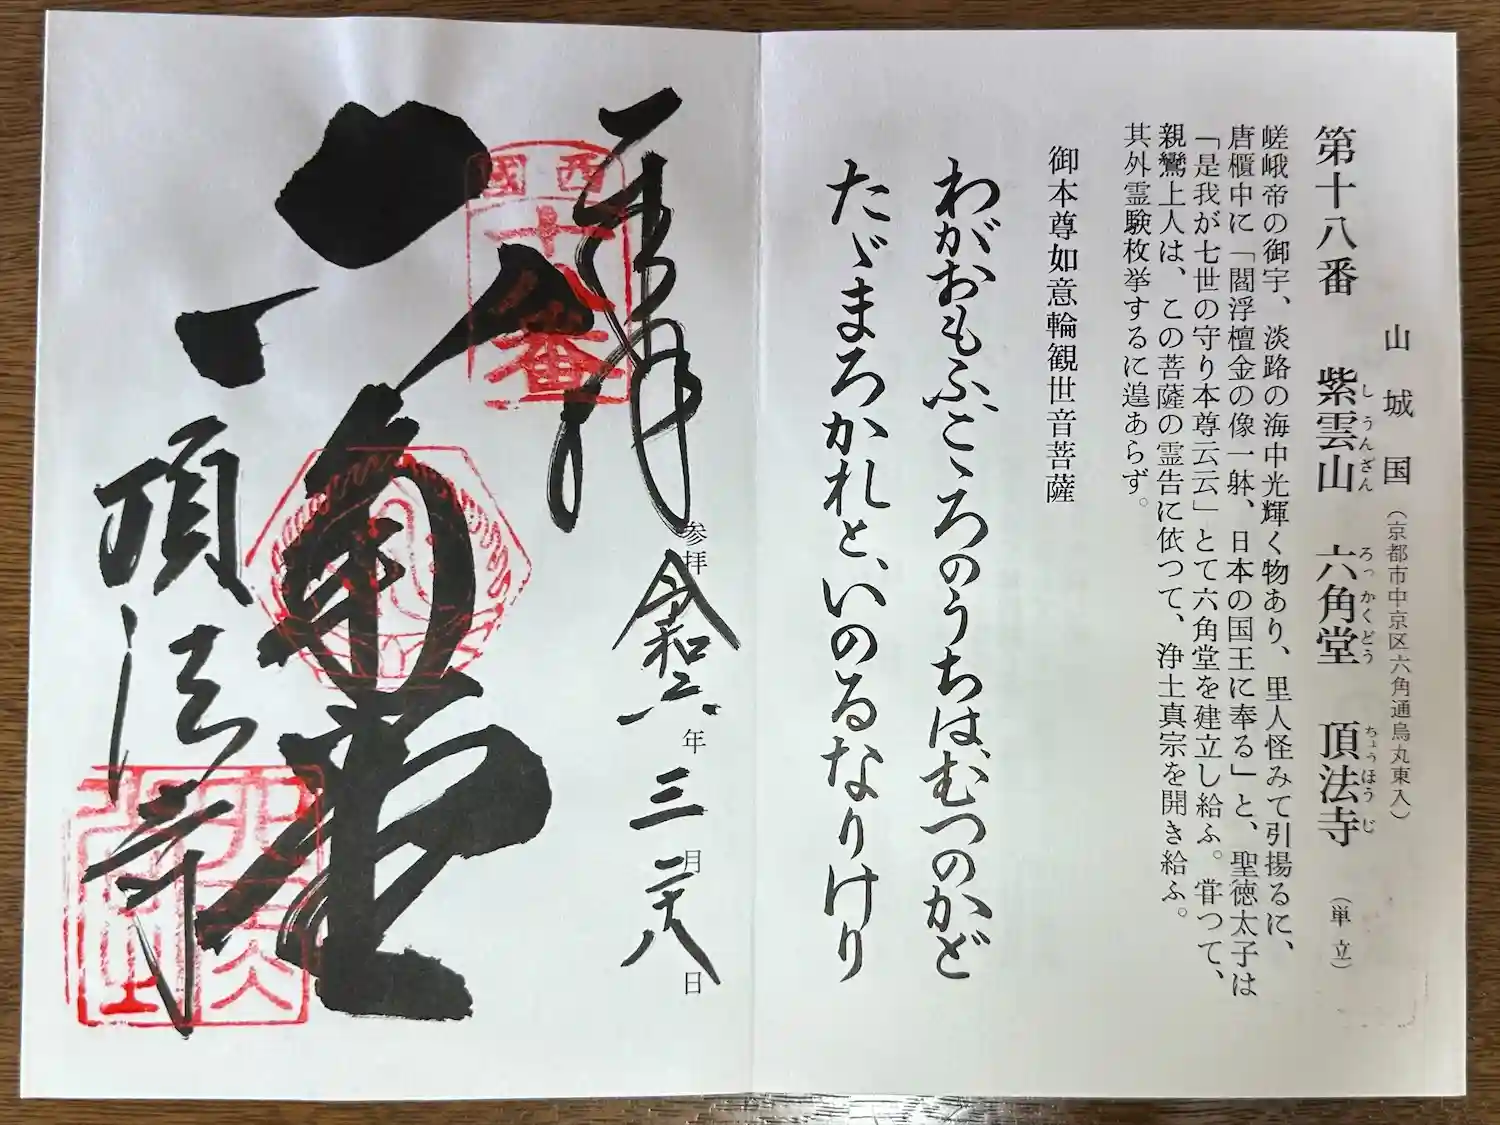 山城国（京都市中京区六角通烏丸東入）
第十八番 紫雲山 六角堂 頂法寺（単立）
しうんざん ろっかくどう ちょうほうじ
嵯峨帝の御宇、淡路の海中光輝く物あり、里人怪みて引揚るに、
唐櫃中に「閻浮檀金の像一躰、日本の国王に奉る」と、聖徳太子は
「是我が七世の守り本尊云云」とて六角堂を建立し給ふ。甞つて、
親鸞上人は、この菩薩の霊告に依つて、浄土真宗を開き給ふ。
其外霊験枚挙するに遑あらず。
御本尊如意輪観世音菩薩
わがおもふ、こゝろのうちは、むつのかど
たゞまろかれと、いのるなりけり
奉拝
参拝 令和六年三月二十八日
西國
十八番
六角堂
頂法寺